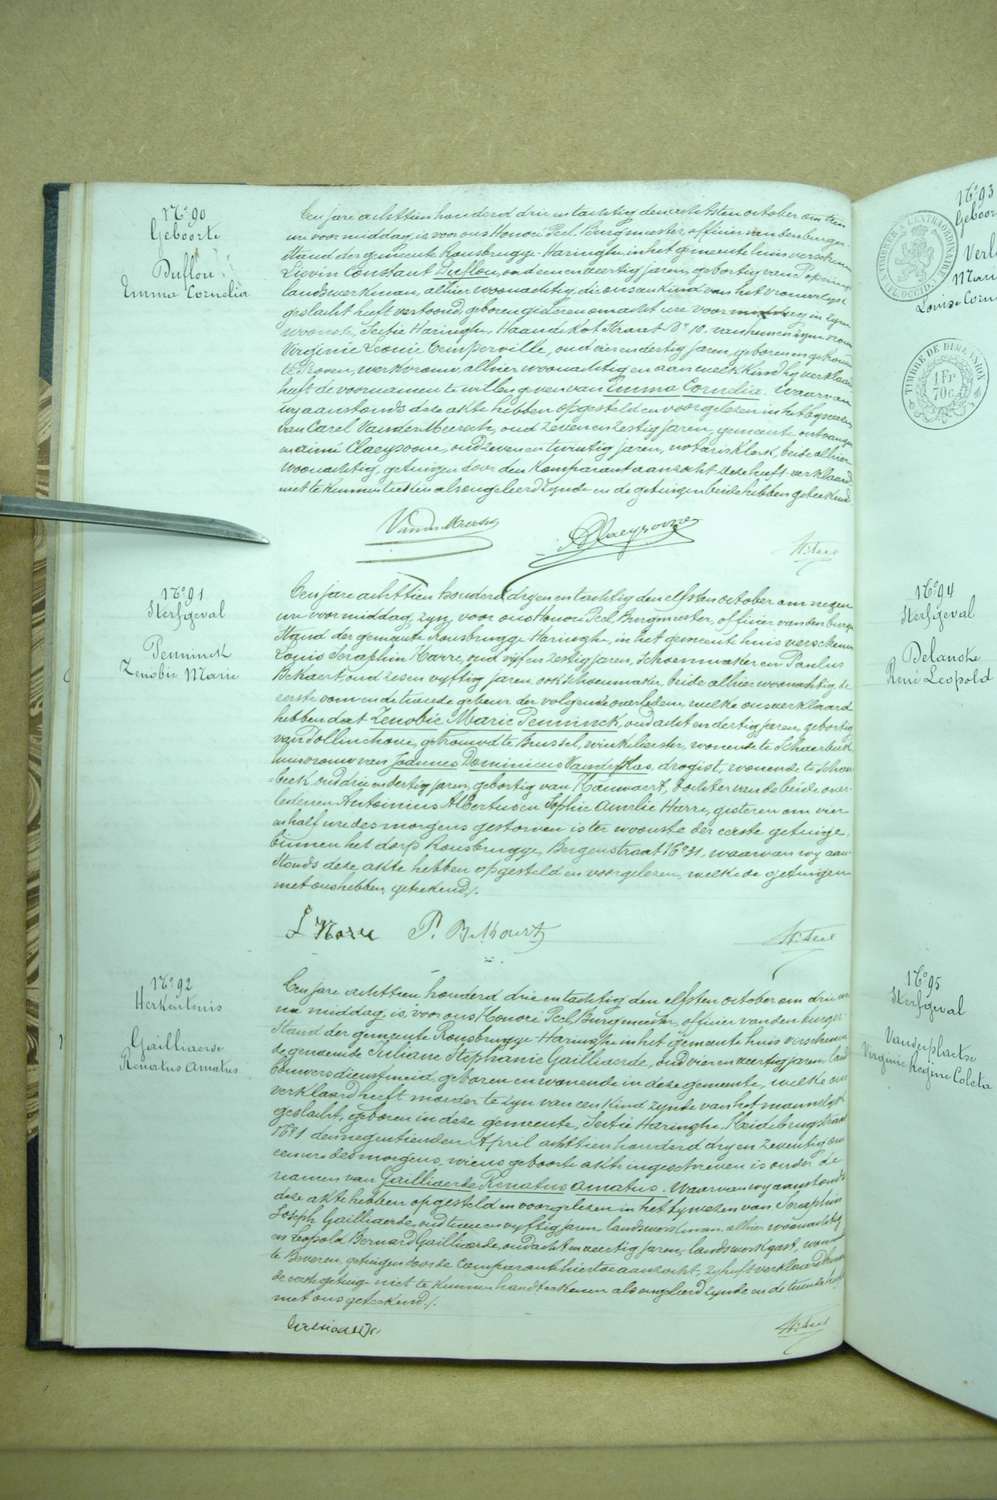 N° 90
Geboorte
Duflou
Emma Cornelia
Een jare achttien honderd drie en tachtig den achtsten october om tien
ure voormiddag, is voor ons Honoré Peel, Burgmeester, officier van den burger-
stand der gemeente Rousbrugge-Haringhe, in het gemeente huis verschenen
Lievin Constant Duflou, oud een en veertig jaren, geboortig van Poperinge
landswerkman, alhier woonachtig, die ons een kind van het vrouwelijk
geslacht heeft vertoond, geboren gisteren om acht ure voormiddag in zijne
woonste, Sectie Haringhe, Haandekot Straat N° 10, van hem en zijne vrouw
Virginie Leonie Temperville, oud vier en dertig jaren, geboren en getrouwd
te Proven, werkvrouw alhier woonachtig en aan welk kind hy verklaard
heeft de voornamen te willen geven van Emma Cornelia. Waarvan
wy aanstonds deze akte hebben opgesteld en voorgelezen in het bywezen
van Carel Vander Meersch, oud zeven en zestig jaren, gemeente ontvanger
en aimé Claeysoone, oud zeven en twintig jaren, notarisklerk, beide alhier
woonachtig, getuigen door den komparant aanzocht deze heeft verklaard
niet te kunnen teekenen als ongeleerd zynde en de getuigen beide hebben geteekend.
VanderMeersch A Claeysoone H. Peel
N° 91
Sterfgeval
Penninck
Zenobie Marie
Een jare achttien honderd dry en tachtig den elfsten october om negen
ure voormiddag, zyn voor ons Honoré Peel Burgmeester, officier van den burger-
stand der gemeente Rousbrugge Haringhe, in het gemeente huis verschenen
Louis Seraphin Harre, oud vijf en zestig jaren, Schoenmaker en Paulus
Bekaert oud zes en vyftig jaren ook schoenmaker, beide alhier woonachtig, de
eerste oom en de tweede gebuer der volgende overledene, welke ons verklaard
hebben dat Zenobie Marie Penninck, oud acht en dertig jaren, geboortig
van Pollinchove, getrouwd te Brussel, winkelierster, wonende te Schaerbeek
huisvrouw van Joannes Dominicus Vandeplas, drogist, wonende te Schaer-
beek, oud drie en dertig jaren, geboortig van Hauwaert, dochter van de beide over-
ledenen Antoinius Albertus en Sophie Amelie Harre, gisteren om vier
en half ure des morgens gestorven is ter woonste der eerste getuige,
binnen het dorp Rousbrugge, Bergenstraat N° 31, waarvan wy aan-
stonds deze akte hebben opgesteld en voorgelezen, welke de getuigen
met ons hebben geteekend /.
L Harre P. Bekaert H. Peel
N° 92
Herkentenis
Gailliaerde
Renatus Amatus
Een jare achttien honderd drie en tachtig den elfsten october om drie ure
na middag, is voor ons Honoré Peel, Burgmeester, officier van den burger-
stand der gemeente Rousbrugge Haringhe in het gemeente huis verschenen
de genoemde Juliane Stephanie Gailliaerde, oud vier en veertig jaren, land-
bouwersdienstmeid, geboren en wonende in deze gemeente, welke ons
verklaard heeft moeder te zyn van een kind zynde van het mannelyk
geslacht, geboren in deze gemeente, Sectie Haringhe,
den negentienden April achttien honderd dry en zeventig om
een ure des morgens, wiens geboorte akte ingeschreven is onder de
namen van Gailliaerde Renatus Amatus. Waarvan wy aanstonds
deze akte hebben opgesteld en voorgelezen in het bywezen van Seraphin
Joseph Gailliaerde, oud twee en vyftig jaren, landswerkman, alhier woonachtig
en Leopold Bernard Gailliaerde, oud acht en veertig jaren, landswerkgast, wonende
te Beveren, getuigen door de Comparante hiertoe aanzocht, zy heeft verklaard benevens
de eerste getuige niet te kunnen handteekenen als ongeleerd zynde en de tweede heeft
met ons geteekend /.
H. Peel
N° 93
Geboor
Verl
Mari
Louise Corne
TIMBRE DE DIMENSION
1 Fr
70 c.
N° 94
Sterfgeval
Delanote
René Leopold
N° 95
Sterfgeval
Vanderplaetse
Virginie Regine Coleta